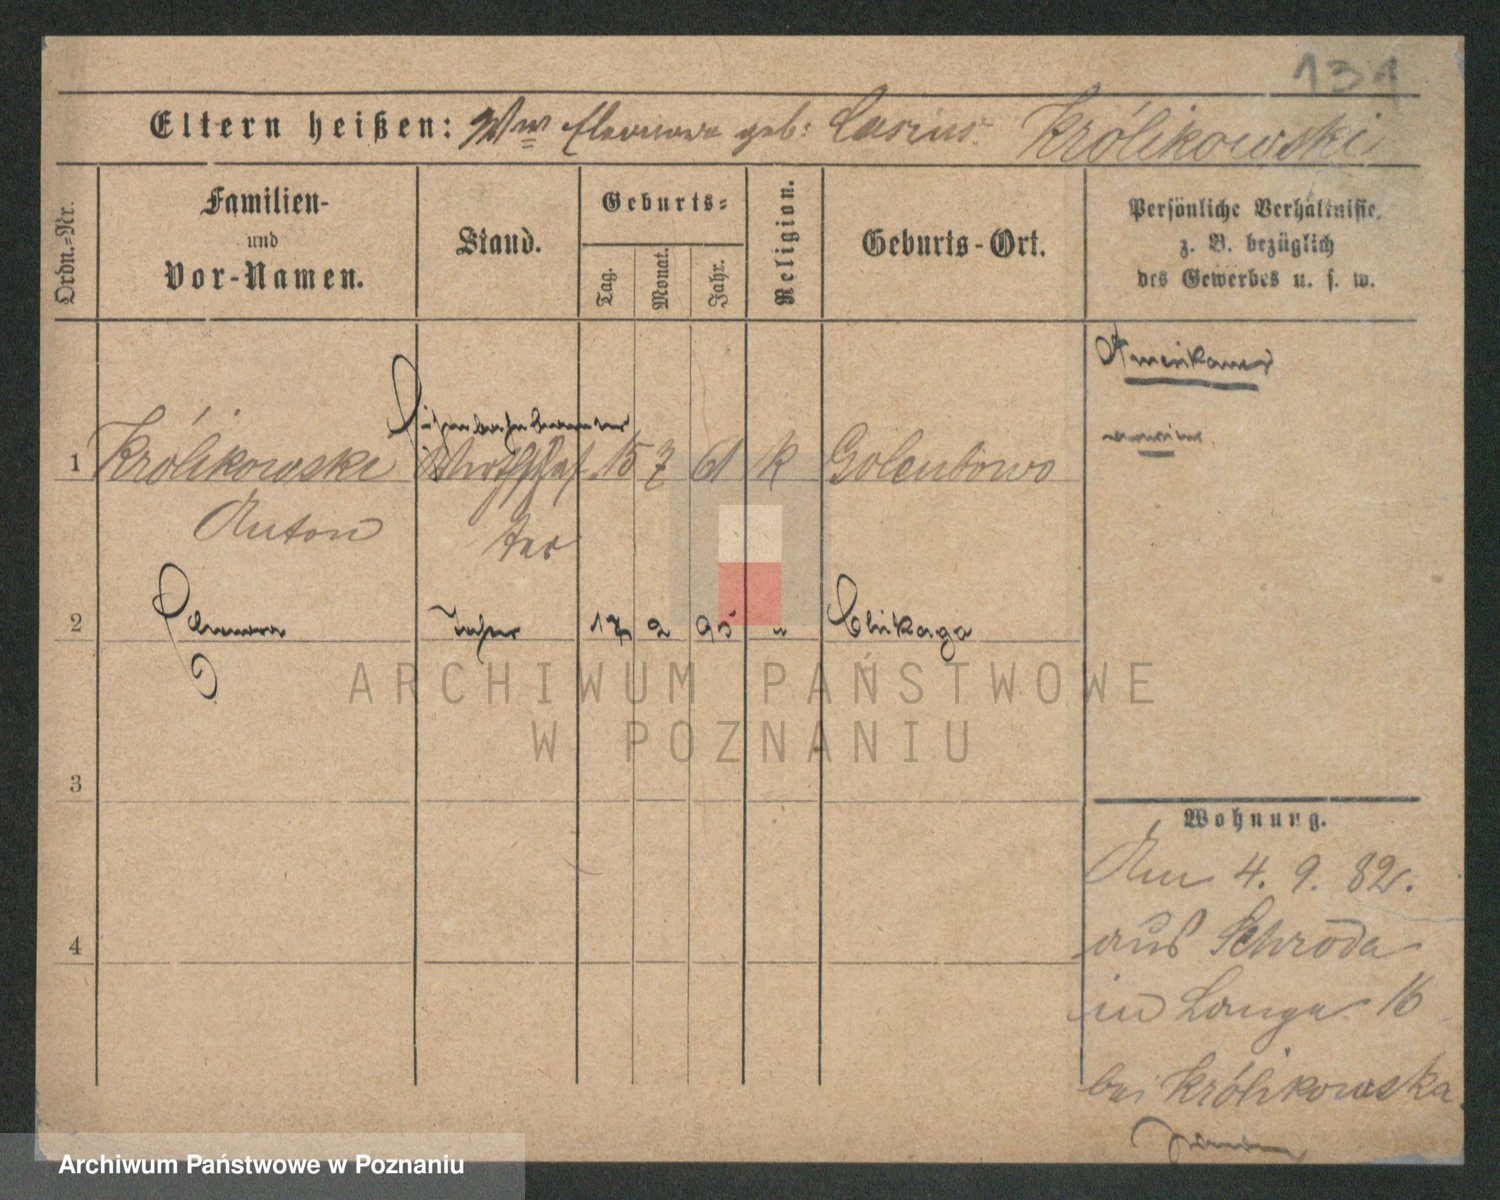 131
Eltern heißen: Ww Eleonora geb: Lasius. Królikowski
Ordn.-Nr.
Familien-
und
Vor-Namen.
Stand.
Geburts-
Tag.
Monat.
Jahr.
Religion.
Geburts-Ort.
Persönliche Verhältnisse,
z. B. bezüglich
des Gewerbes u. s. w.
Amerikaner
1 Królikowski 15 7 61 k Golenbowo
Anton
2 17 2 95 " Chikago
3
4
Wohnung.
Am 4. 9. 82.
aus Schroda
in Lange 16
bei Królikowska
ARCHIWUM PAŃSTWOWE
W POZNANIU
Archiwum Państwowe w Poznaniu